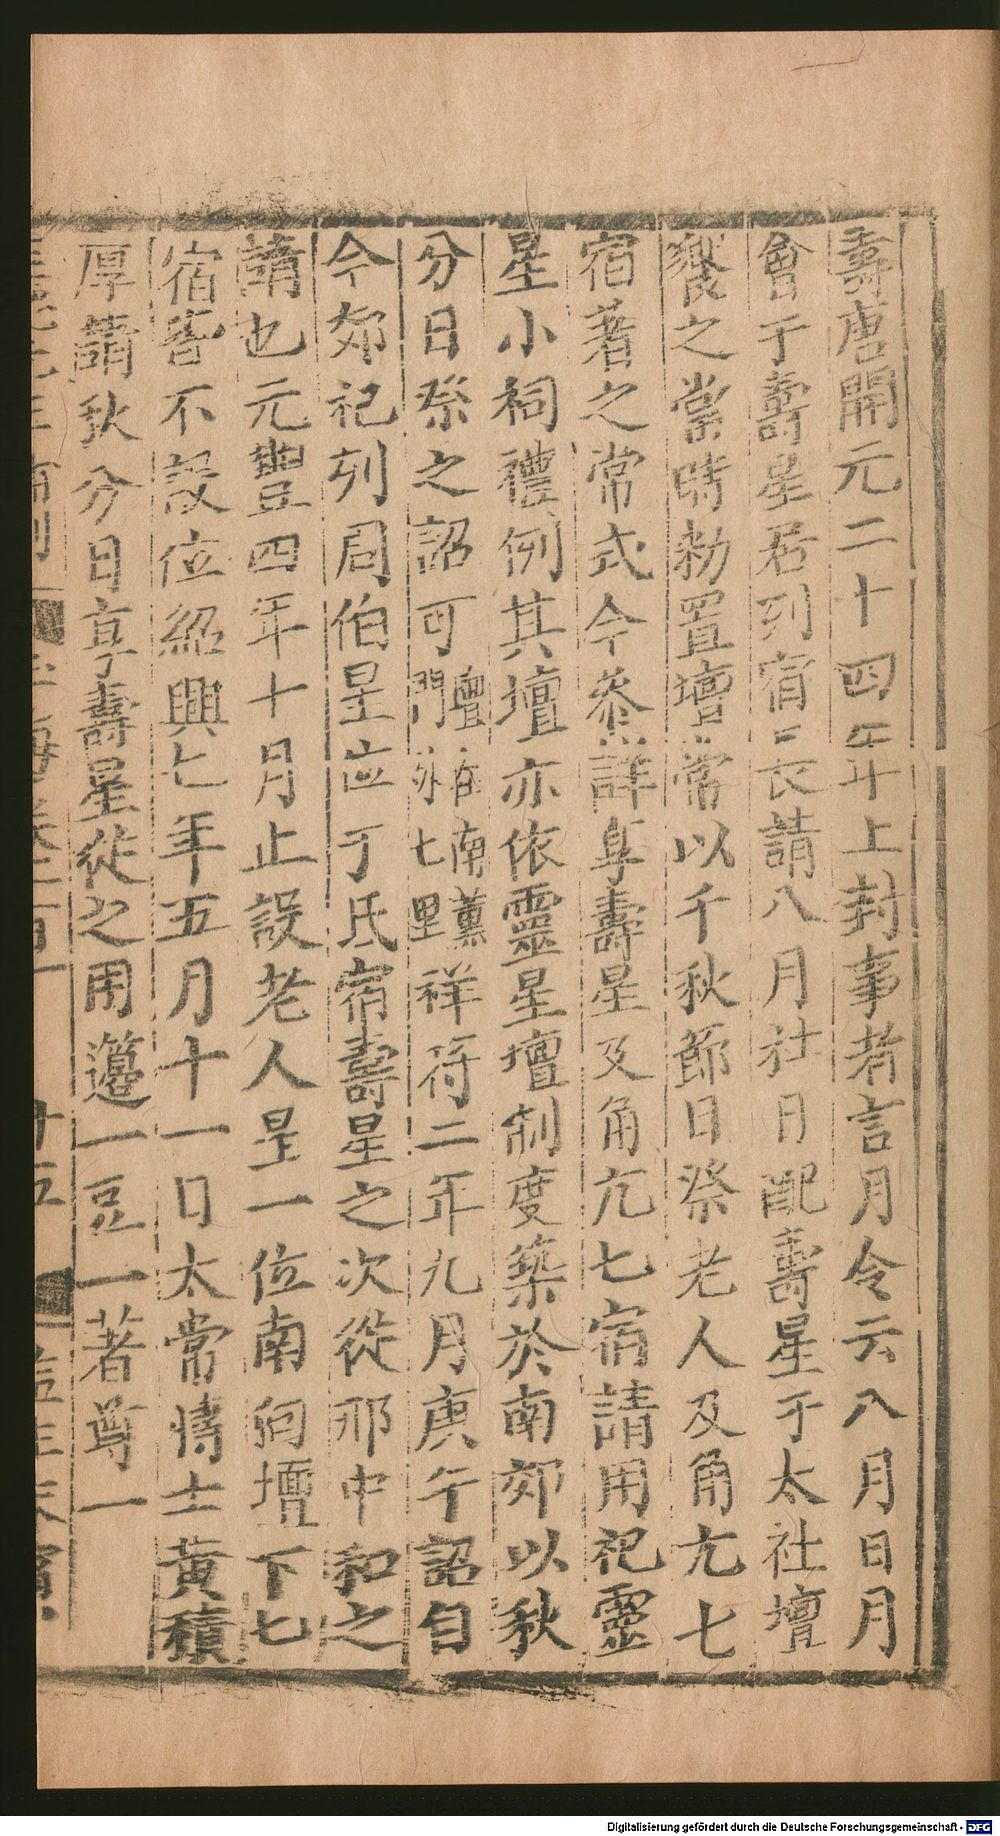 壽唐開元二十四年上封事者言月令云八月日月
會于壽星居列宿之長請八月社日配壽星于太社壇
饗之當時勑置壇常以千秋節日祭老人及角亢七
宿著之常式今參詳享壽星及角亢七宿請用祀靈
星小祠禮例其壇亦依靈星壇制度築於南郊以秋
分日祭之詔可壇在南薫門外七里祥符二年九月庚午詔自
今郊祀列周伯星位于氐宿壽星之次從邢中和之
請也元豐四年十月止設老人星一位南向壇下七
宿皆不設位紹興七年五月十一日太常博士黃積
厚請秋分日享壽星從之用籩一豆一著尊一
十五
Digitalisierung gefördert durch die Deutsche Forschungsgemeinschaft - DFG